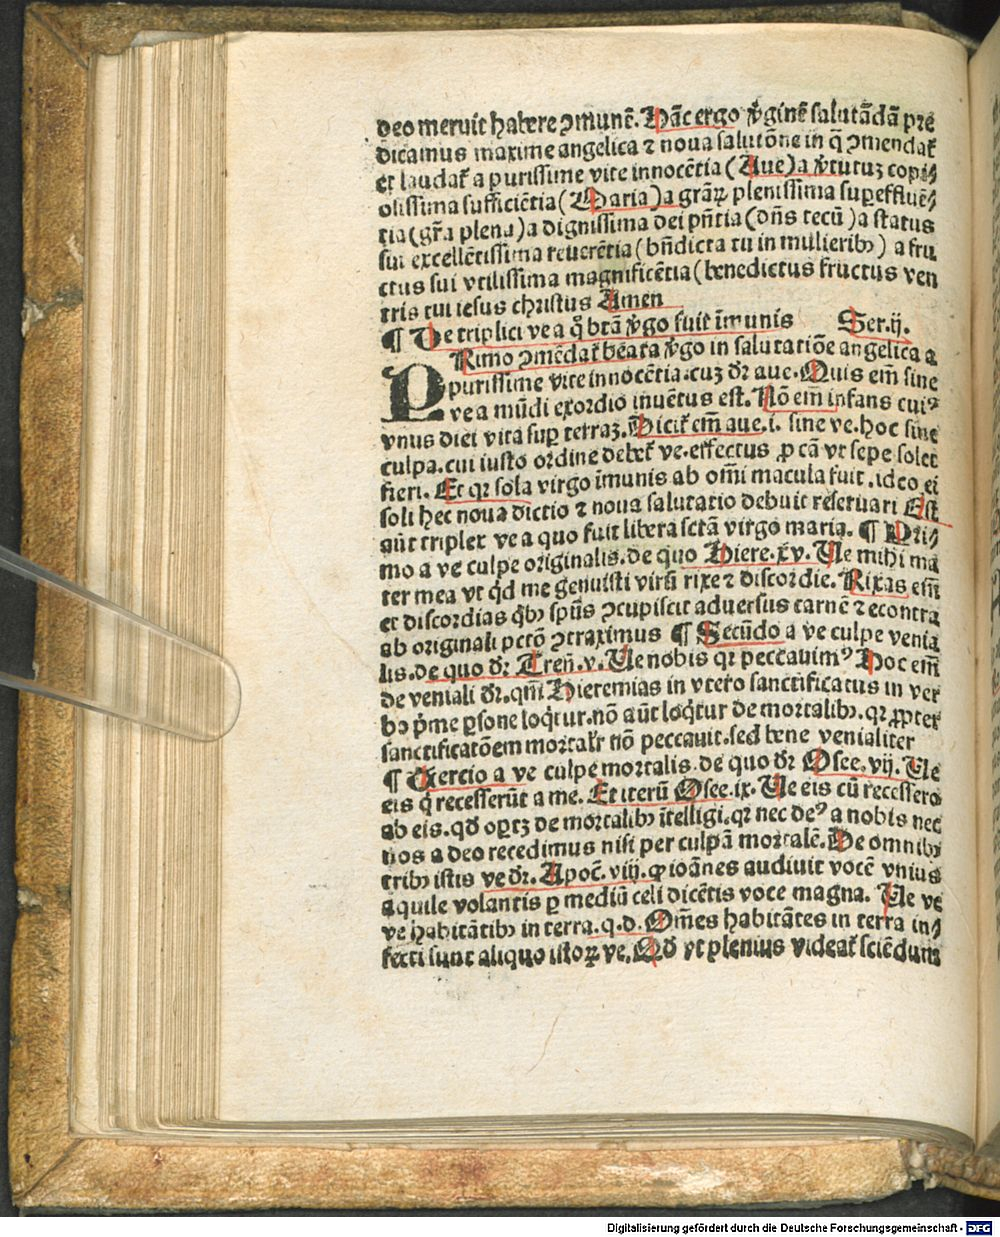 deo meruit habere ↄmunē. Hāc ergo v̓ginē salutādā pre
dicamus maxime angelica ⁊ noua salutōne in q̄ ↄmendat̄
et laudat̄ a purissime vite innocētia (Aue) a v̓tutuꝫ copi⸗
olissima sufficiētia (Maria) a grāꝝ plenissima suꝑeffluē⸗
tia (gr̄a plena) a dignissima dei pn̄tia (dn̄s tecū) a status
sui excellētissima reuerētia (bn̄dicta tu in mulieribꝫ) a fru
ctus sui vtilissima magnificētia (benedictus fructus ven
tris tui iesus christus Amen
¶ De triplici ve a q̊ btā v̓go fuit īmunis Ser.ij.
PRimo ↄmēdat̄ beata v̓go in salutatiōe angelica a
purissime vite innocētia.cuꝫ dr̄ aue.Quis em̄ sine
ve a mūdi exordio inuētus est.Nō em̄ infans cuiꝰ
vnus diei vita suꝑ terraꝫ.Dicit̄ em̄ aue.i. sine ve.hoc sine
culpa.cui iusto ordine debet̄ ve.effectus ꝓ cā vt sepe solet
fieri. Et qꝛ sola virgo īmunis ab om̄i macula fuit .ideo ei
soli hec noua dictio ⁊ noua salutatio debuit reseruari Est
aūt triplex ve a quo fuit libera sctā virgo maria. ¶ Pri⸗
mo a ve culpe originalis.de quo Hiere.xv. Ve mihi ma
ter mea vt qd̓ me genuisti virū rixe ⁊ discordie. Rixas em̄
et discordias qb̓ꝫ spūs ↄcupiscit aduersus carnē ⁊ econtra
ab originali pctō ↄtraximus ¶ Secūdo a ve culpe venia
lis.de quo dr̄ Tren̄.v. Ve nobis qꝛ peccauimꝰ Hoc em̄
de veniali dr̄.qm̄ Hieremias in vtero sanctificatus in ver
bꝫ p̄me ꝑsone loqt̓ur.nō aūt loqt̓ur de mortalibꝫ.qꝛ ꝓpter
sanctificatōem mortalr̄ nō peccauit.sed bene venialiter
¶ Tercio a ve culpe mortalis.de quo dr̄ Osee.vij. Ve
eis q̄ recesserūt a me. Et iterū Osee.ix. Ve eis cū recessero
ab eis.qd̓ oꝑtꝫ de mortalibꝫ ītelligi.qꝛ nec deꝰ a nobis nec
nos a deo recedimus nisi per culpā mortalē.De omnibꝫ
tribꝫ istis ve dr̄. Apoc̄.viij. ꝙ ioānes audiuit vocē vnius
aquile volantis ꝑ mediū celi dicētis voce magna. Ve ve
ve habitātibꝫ in terra.q.d. Om̄es habitātes in terra in⸗
fecti sunt aliquo istoꝝ ve.Qd̓ vt plenius videat̄ sciēdum
Digitalisierung gefördert durch die Deutsche Forschungsgemeinschaft - DFG